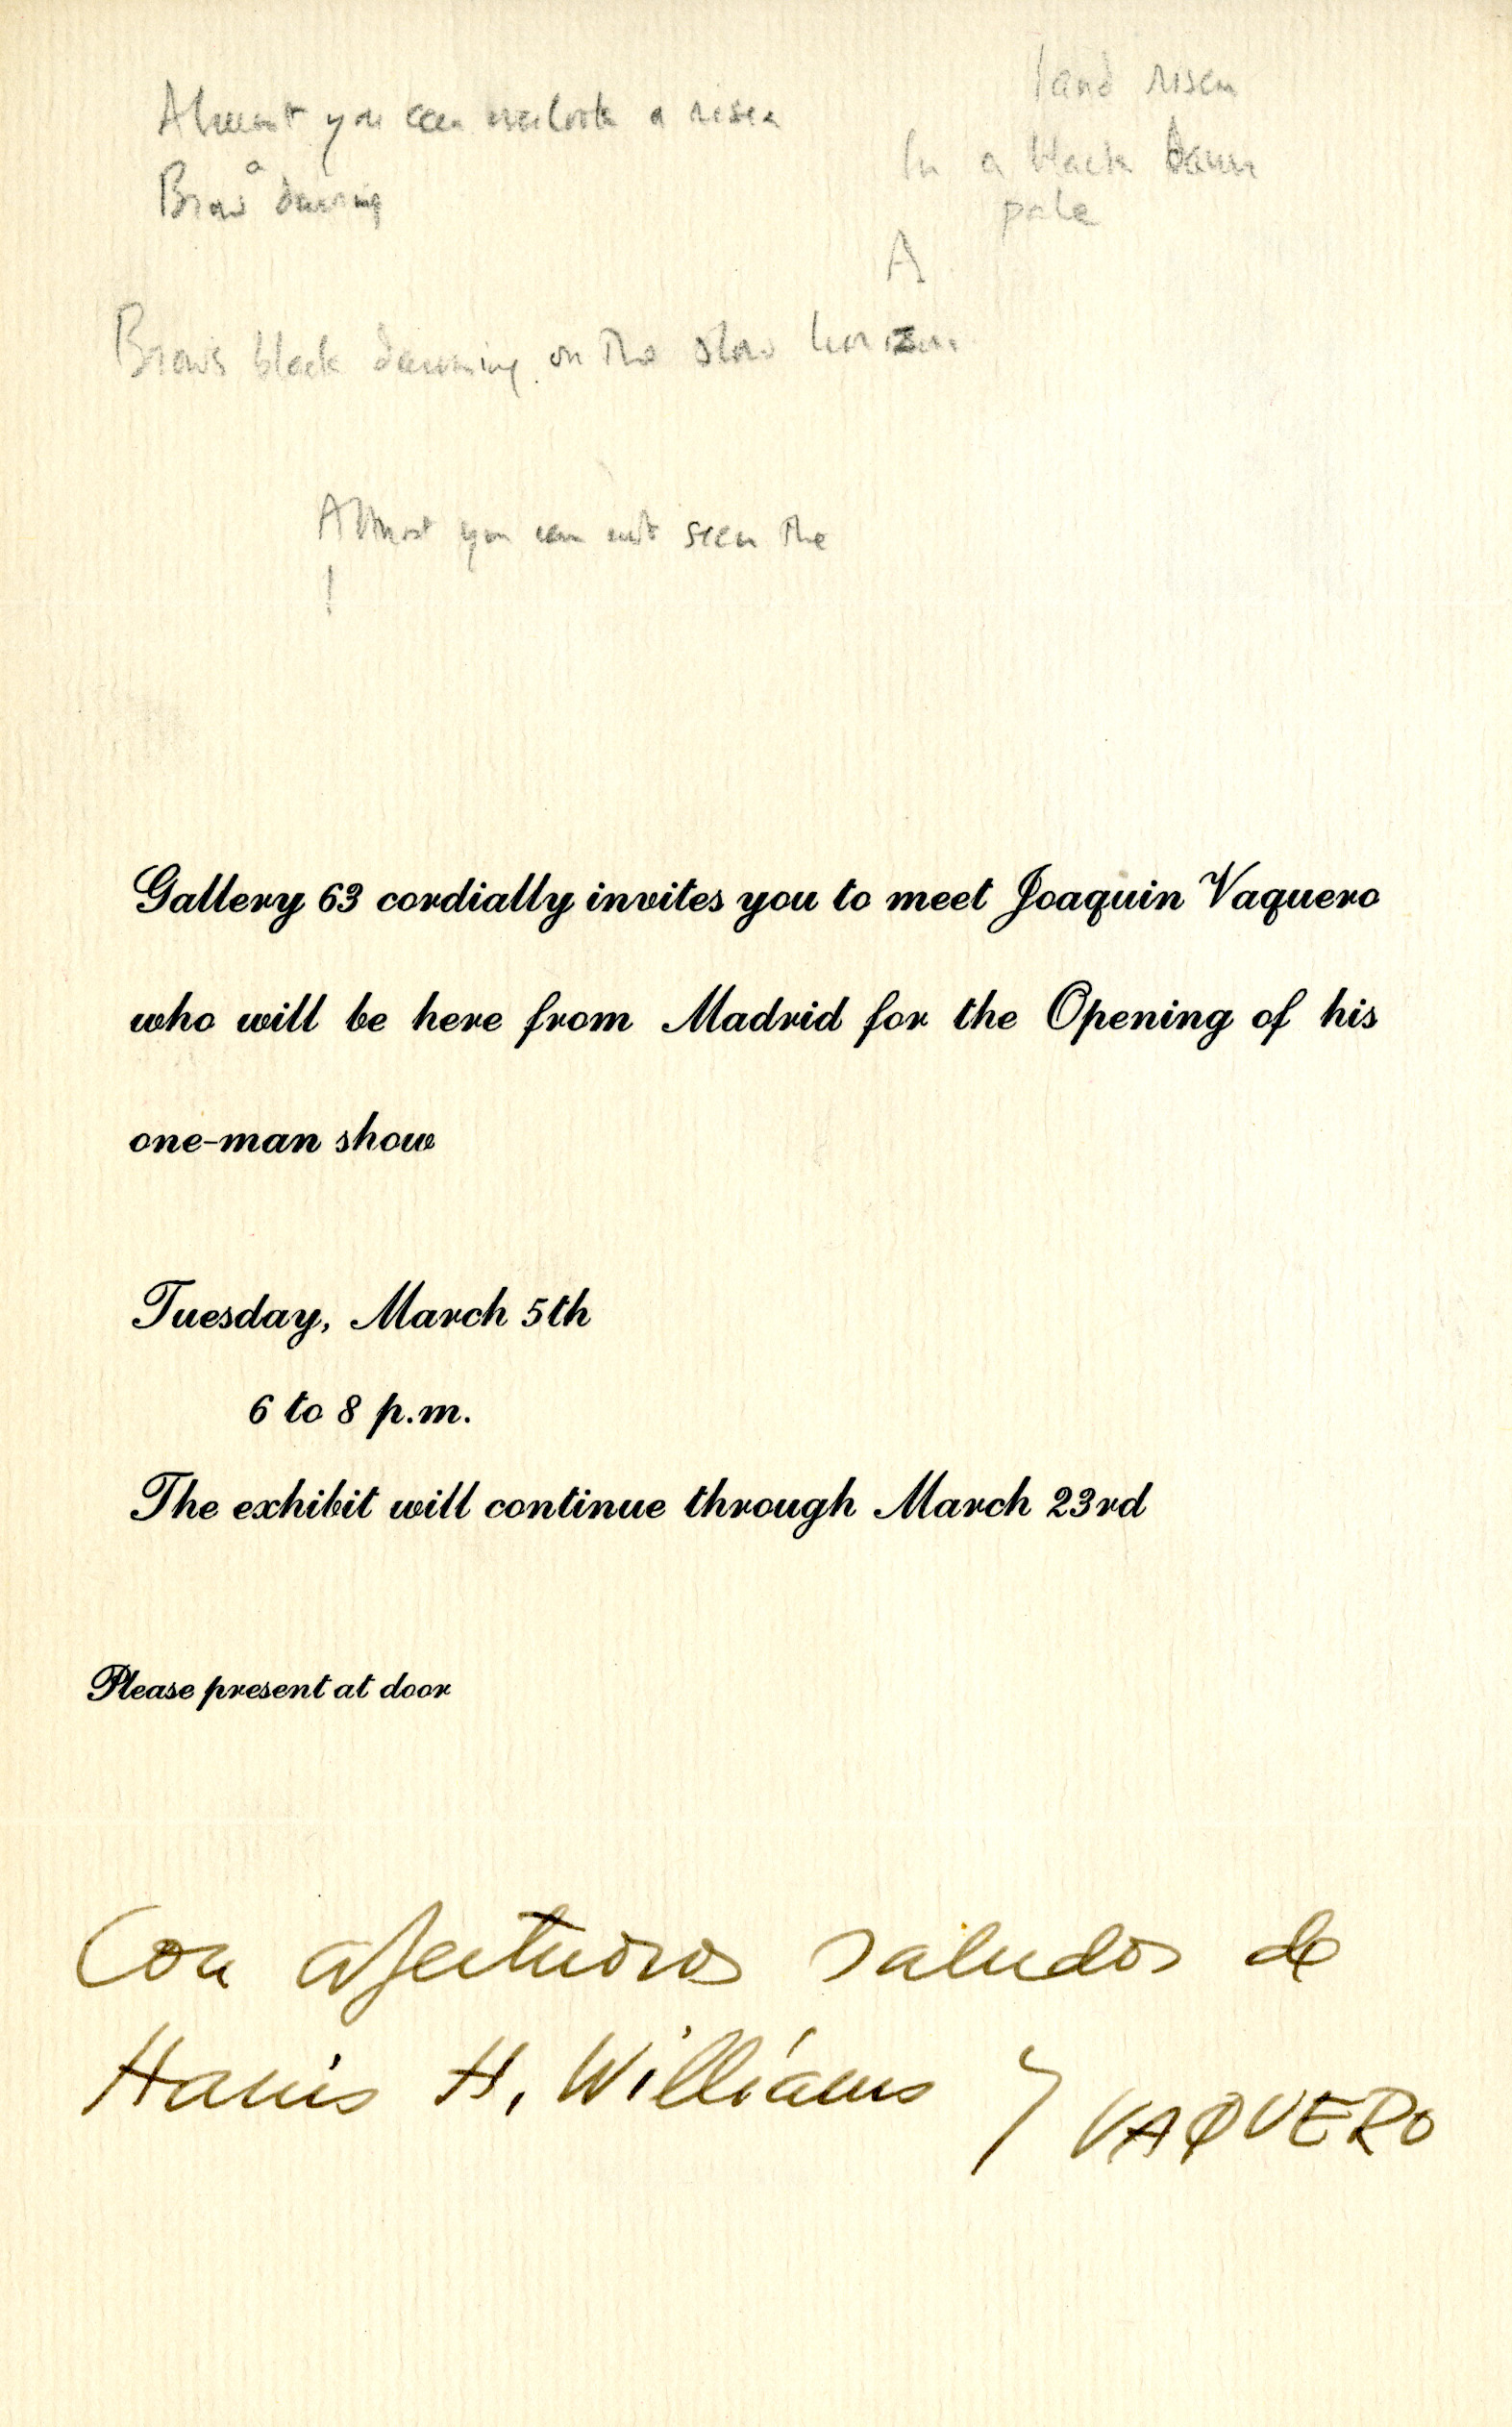 land risen
Almost you can overlook a risen
In a black dawn
a
Brow dawning
pale
A
Brow's black dawning on the slow horizon.
Almost you can not seen the
Gallery 63 cordially invites you to meet Joaquin Vaquero
who will be here from Madrid for the Opening of his
one-man show
Tuesday, March 5th
6 to 8 p.m.
The exhibit will continue through March 23rd
Please present at door
Con afectuosos saludos de
Harris H. Williams y VAQUERO